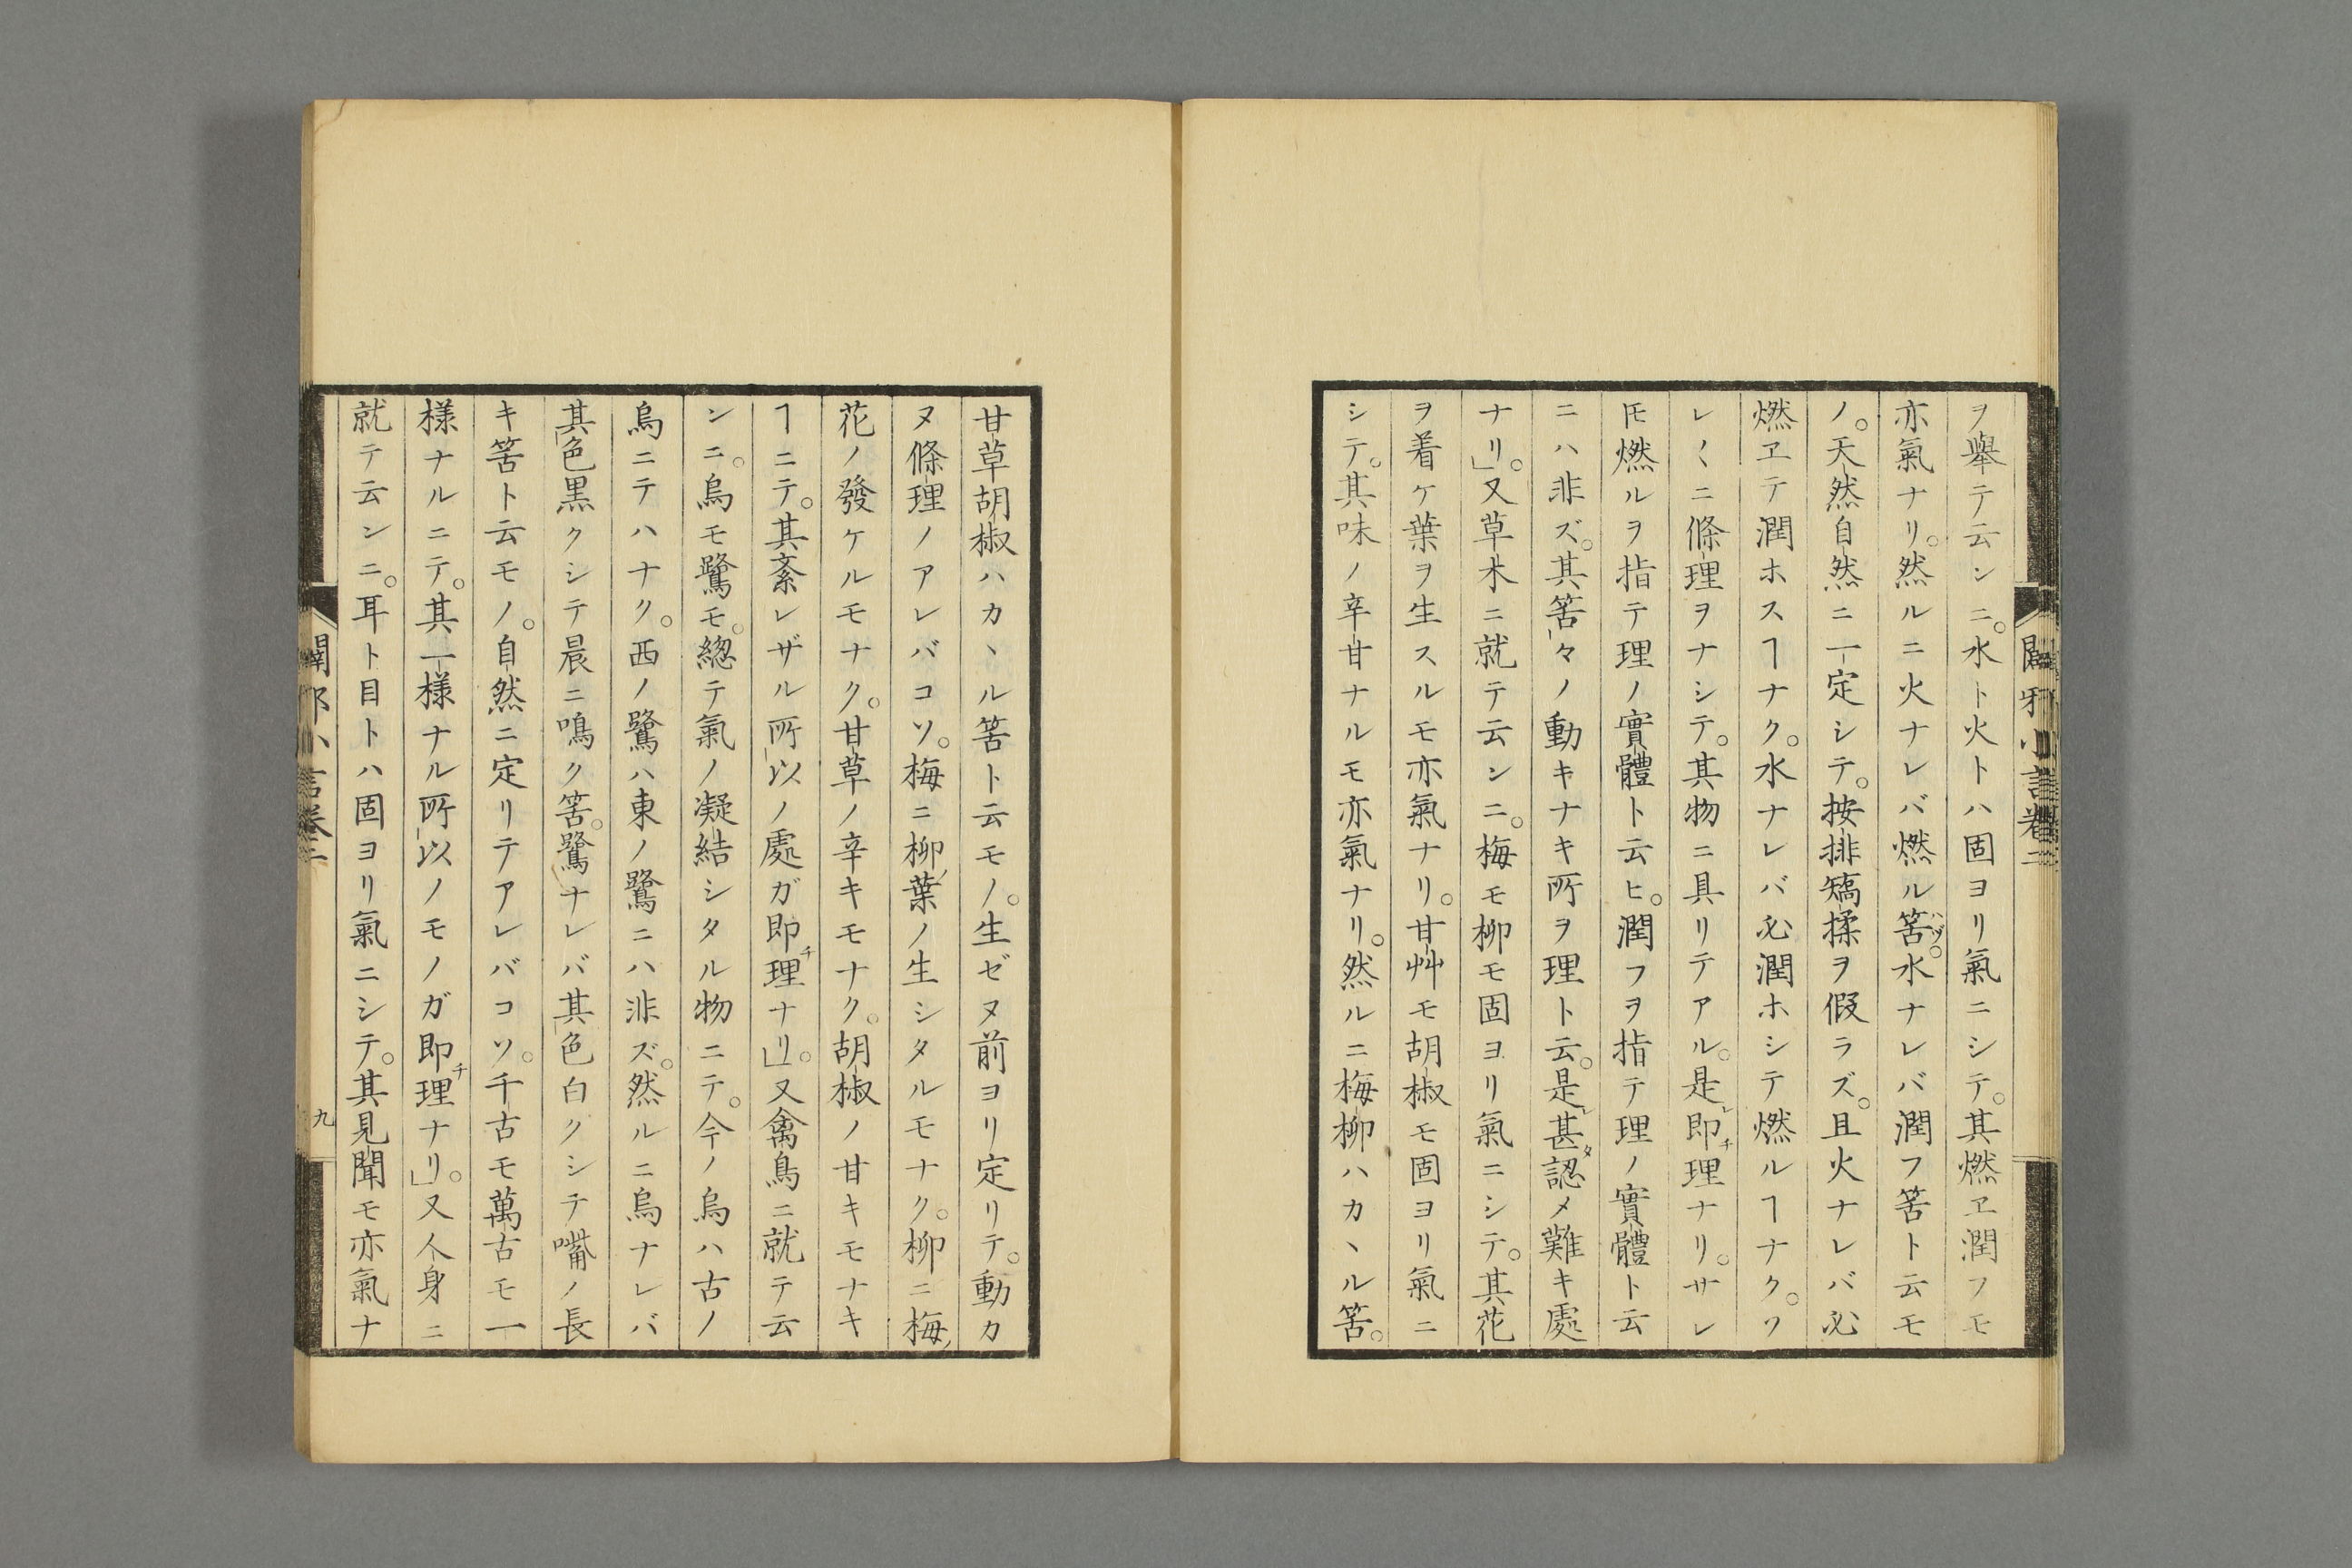 ヲ擧テ云ンニ。水ト火トハ固ヨリ氣ニシテ。其燃ヱ潤フモ
亦氣ナリ。然ルニ火ナレバ燃ル筈ハヅ。水ナレバ潤フ筈ト云モ
ノ。天然自然ニ一定シテ。按排矯揉ヲ假ラズ。且火ナレバ必
燃ヱテ潤ホスヿナク。水ナレバ必潤ホシテ燃ルヿナク。ソ
レ〱ニ條理ヲナシテ。其物ニ具リテアル。是レ即チ理ナリ。サレ
𪜈燃ルヲ指テ理ノ實體ト云ヒ。潤フヲ指テ理ノ實體ト云
ニハ非ズ。其筈々ノ動キナキ所ヲ理ト云。是レ甚タ認メ難キ處
ナリ。」又草木ニ就テ云ンニ。梅モ柳モ固ヨリ氣ニシテ。其花
ヲ着ケ葉ヲ生スルモ亦氣ナリ。甘艸モ胡椒モ固ヨリ氣ニ
シテ。其味ノ辛甘ナルモ亦氣ナリ。然ルニ梅柳ハカヽル筈。
闢邪小言卷二
甘草胡椒ハカヽル筈ト云モノ。生ゼヌ前ヨリ定リテ。動カ
ヌ條理ノアレバコソ。梅ニ柳ノ葉ノ生シタルモナク。柳ニ梅ノ
花ノ發ケルモナク。甘草ノ辛キモナク。胡椒ノ甘キモナキ
ヿニテ。其紊レザル所以ノ處ガ即チ理ナリ。」又禽鳥ニ就テ云
ンニ。烏モ鷺モ。總テ氣ノ凝結シタル物ニテ。今ノ烏ハ古ノ
烏ニテハナク。西ノ鷺ハ東ノ鷺ニハ非ズ。然ルニ烏ナレバ
其色黒クシテ晨ニ鳴ク筈。鷺ナレバ其色白クシテ嘴ノ長
キ筈ト云モノ。自然ニ定リテアレバコソ。千古モ萬古モ一
樣ナルニテ。其一樣ナル所以ノモノガ即チ理ナリ。」又人身ニ
就テ云ンニ。耳ト目トハ固ヨリ氣ニシテ。其見聞モ亦氣ナ
闢邪小言卷二
九